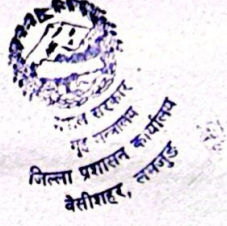 नेपाल सरकार
गृह मन्त्रालय
जिल्ला प्रशासन कार्यालय
बेसीशहर, लमजुङ